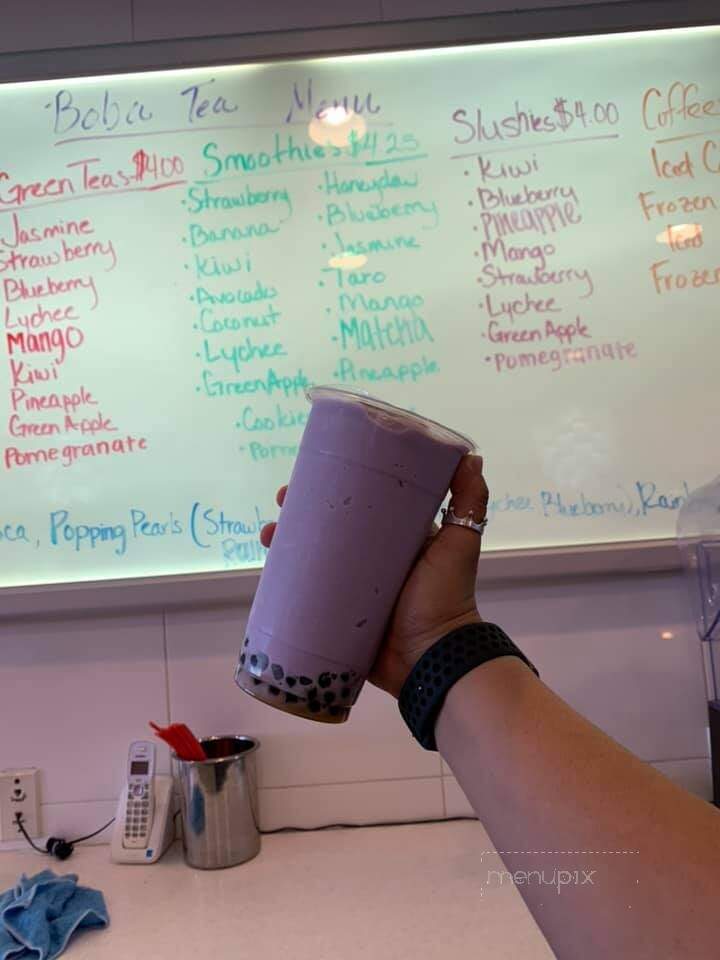 Boba Tea Menu
Green Teas $4.00
Jasmine
Strawberry
Blueberry
Lychee
Mango
Kiwi
Pineapple
Green Apple
Pomegranate
Smoothies $4.25
• Strawberry
• Banana
• Kiwi
• Avocado
• Coconut
• Lychee
• Green Apple
• Cookie
• Pom
• Honeydew
• Blueberry
• Jasmine
• Taro
• Mango
• Matcha
• Pineapple
Slushies $4.00
• Kiwi
• Blueberry
• Pineapple
• Mango
• Strawberry
• Lychee
• Green Apple
• Pomegranate
Coffee
Iced C
Frozen
Iced
Frozen
ca, Popping Pearls (Strawb ychee, Blueberry), Rainb
menupix